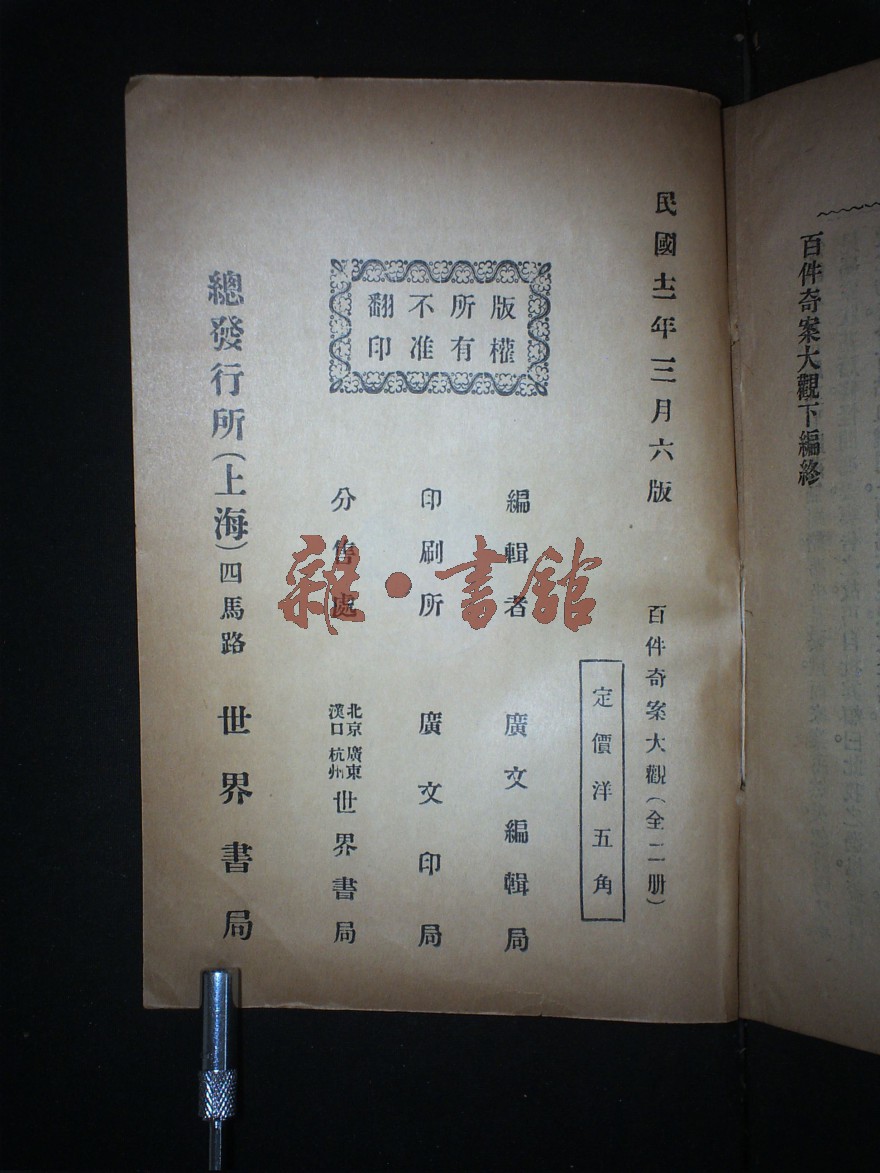 百件奇案大觀下編終
民國十二年三月六版
百件奇案大觀(全二册)
定價洋五角
版權
所有
不准
翻印
編輯者 廣文編輯局
印刷所 廣文印局
分售處 北京 廣東 漢口 杭州 世界書局
總發行所(上海)四馬路 世界書局
雜·書館